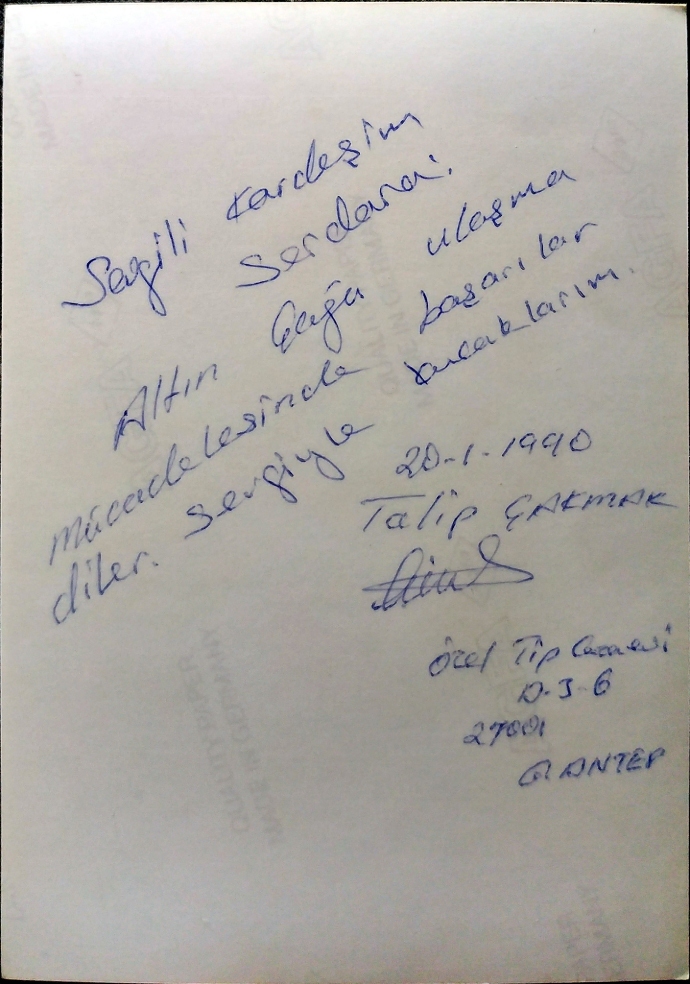 Sevgili Kardeşim
Serdara.
Altın Çağa ulaşma
mücadelesinde başarılar
diler. Sevgiyle kucaklarım.
20-1-1990
Talip ÇAKMAK
Özel Tip Cezaevi
D-3-6
27001
G.ANTEP
QUALITY PAPER
MADE IN GERMANY